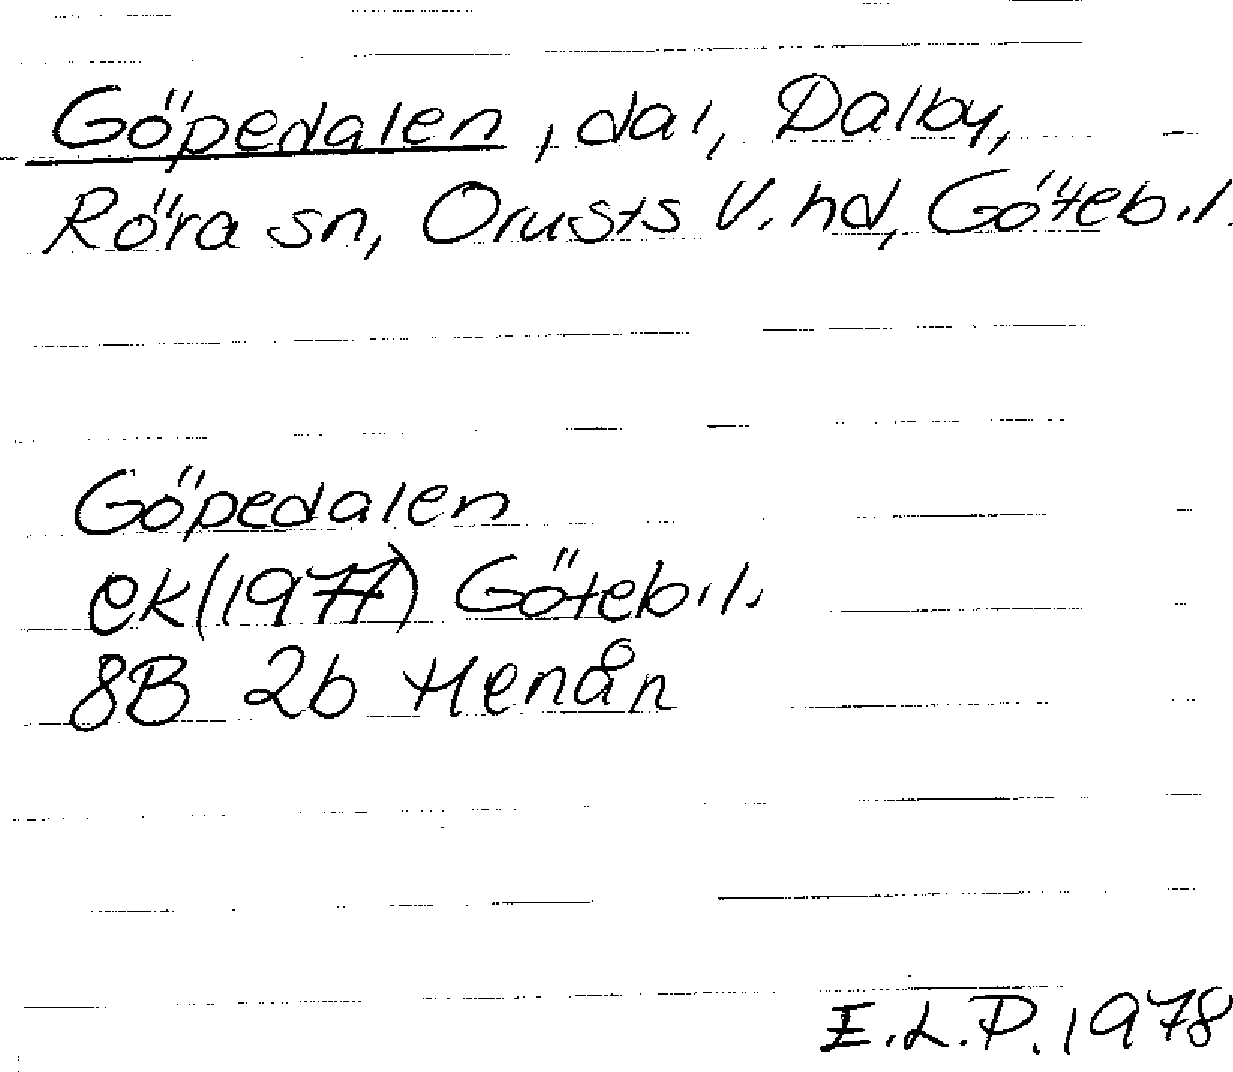 Göpedalen, dal, Dalby,
Röra sn, Orusts V. hd, Göteb.l.
Göpedalen
ek(1977) Göteb.l.
8B 2b Henån
E.L.P. 1978